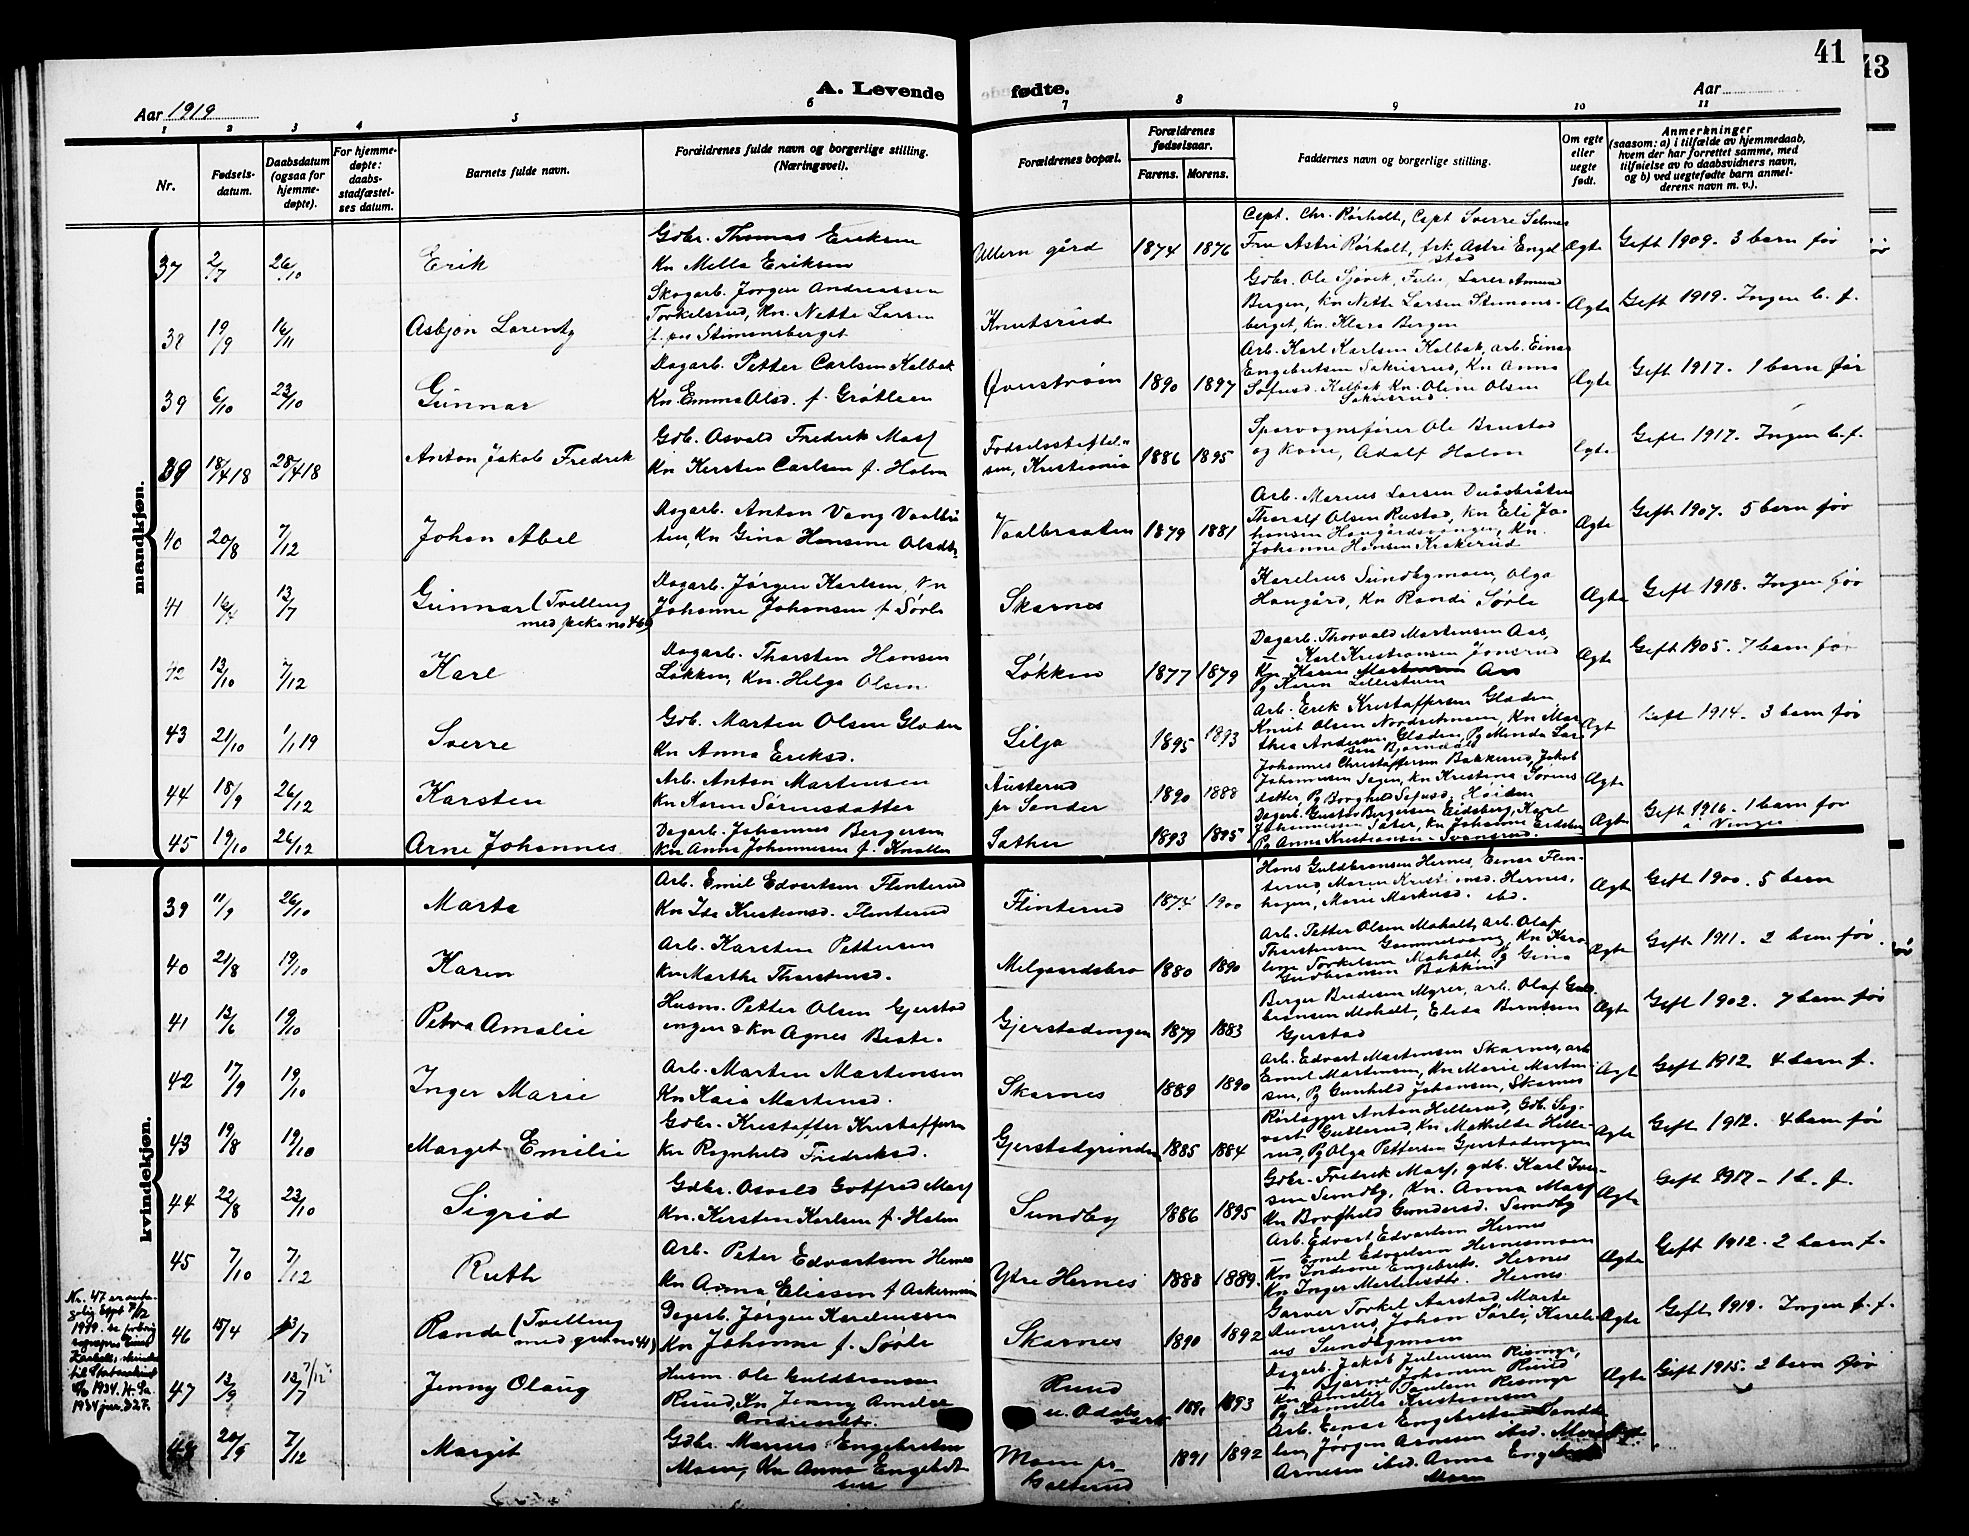 41
43
A. Levende
fødte.
Aar 1919
Aar
1 2 3 4 5 6 7 8 9 10 11
Nr.
Fødsels-
datum.
Daabsdatum
(ogsaa for
hjemme-
døpte).
For hjemme-
døpte:
daabs-
stadfæstel-
ses datum.
Barnets fulde navn.
Forældrenes fulde navn og borgerlige stilling.
(Næringsvei).
Forældrenes bopæl.
Forældrenes
fødselsaar.
Farens. Morens.
Faddernes navn og borgerlige stilling.
Om egte
eller
uegte
født.
Anmerkninger
(saasom: a) i tilfælde av hjemmedaab,
hvem der har forrettet samme, med
tilføielse av to daabsvidners navn,
og b) ved uegtefødte barn anmel-
derens navn m. v.).
mandkjøn.
37 2/7 26/10 Erik
Gbr. Thomas Eriksen
Kn Mella Eriksen
Ullern gård 1874 1876
Capt. Chr. Rørholt, Capt Sverre Selmer
Fru Astri Rørholt, frk Astri Engel
stad
Ægte Gift 1909. 3 barn før
38 19/9 16/11 Asbjøn Lorentz
Skogarb. Jørgen Andreassen
Torkelsrud, Kn. Nette Larsen
f. paa Stimansberget
Knutsrud
Gbr. Ole Sjøvik,
Bergen, Kn Nette Larsen Stimans-
berget, Kn. Klara Bergen
Ægte Gift 1919. Ingen b. f.
39 6/10 23/10 Gunnar
Dagarb. Petter Carlsen Kalbak
Kn. Emma Olsd. f. Grøtleen
Øvenstrøm 1890 1897
Arb. Karl Karlsen Kalbak, arb. Einar
Engebretsen Sakrisrud, Kn Anna
Sofusd. Kalbak Kn. Oline Olsen
Sakrisrud.
Ægte Gift 1917. 1 barn før
39 18/4 18 28/4 18 Anton Jakob Fredrik
Gdb. Osvald Fredrik Masf
Kn Kersten Carlsen f. Holm
Fødselsstiftel-
sen, Kristiania 1886 1895
Sporvognsfører Ole Brustad
og Kone, Adolf Holm
Ægte Gift 1917. Ingen b. f.
40 20/8 7/12 Johan Abel
Dagarb. Anton Vang Vaalbra
ten, Kn Gina Hansine Olsdt.
Vaalbraaten 1879 1881
Arb. Marius Larsen
Thoralf Olsen Rustad, Kn Eli Jo-
hansen Haugårdsengen, Kn.
Johanne Hansen Krakerud
Ægte Gift 1907. 5 barn før
41 16/4 13/7 Gunnar (Tvilling
med pike no 46)
Dagarb. Jørgen Karlsen, Kn
Johanne Johansen f. Sørli
Skarnes
Karelius Sundbymoen, Olga
Haugård, Kn Randi Sørli
Ægte Gift 1918. Ingen før
42 13/10 7/12 Karl
Dagarb. Thorsten Hansen
Løkken, Kn. Helga Olsen
Løkken 1877 1879
Dagarb. Thorvald Martinsen Aas,
— Karl Kristiansen Jonsrud
Kn Karen Martinsen Aas
Pg Karen Lillestrøm
Ægte Gift 1905. 7 barn før
43 21/10 1/1 19 Sverre
Gdb. Marten Olsen Gladen
Kn Anna Eriksd.
Lilja 1895 1893
Arb. Erik Kristoffersen Gladen
Knut Olsen Nordsetmoen, Kn Mar
thea Andersen Gladen, Pg Minda Lar
sen Bjørndal
Ægt Gift 1914. 3 barn før
44 18/9 26/12 Karsten
Arb. Anton Martinsen
Kn Karen Sørensdatter
Austerud
pr Sander 1890 1888
Johannes Christoffersen Bakkerud, Jakob
Johannesen Sagen, Kn Kristine Sørens
datter, Pg Borghild Sofusd, Heiden
Ægte
45 19/10 26/12 Arne Johannes
Dagarb. Johannes Bergersen
Kn Anna Johannesen f. Knallen
Sæther 1893 1895
Dagarb. Gustav Bergersen Eidsberg, Karl
Johannesen Sæter, Kn Johanne Eidsber
Pg Anna Kristiansen - Svansrud.
Ægte Gift 1916. 1 barn før
i Vinger
kvindekjøn.
39 11/9 26/10 Marta
Arb. Emil Edvartsen Flinterud
Kn Ida Kristiansd. Flinterud
Flinterud 1874 1900
Hans Guldbransen Hernes, Einar Flin-
terud, Maren Kristiansd. Hernes,
hagen, Marie Markusd. ibd.
Ægte Gift 1900. 5 barn
40 21/8 19/10 Karen
Arb. Karsten Pettersen
Kn Marthe Thorstensd.
Melgaardsbro 1880 1890
Arb. Petter Olsen Moholt, arb. Olaf
Thorstensen Gammelvang, Kn Karo
line Torkelsen Moholt Pg Gina
Gudbransen Bakken
Ægte Gift 1911. 2 barn før.
41 13/6 19/10 Petra Amalie
Husm. Petter Olsen Gjerstad
engen & Kn Agnes Beate.
Gjerstadengen 1879 1883
Berger Bredesen Myrer, arb. Olaf Gul-
bransen Moholt, Elida Berntsen
Gjerstad
Ægte Gift 1902. 7 barn før
42 17/9 19/10 Inger Marie
Arb. Marten Martinsen
Kn Kaia Martinsd.
Skarnes 1889 1890
Arb. Edvart Martinsen Skarnes, arb
Emil Martinsen, Kn Marie Martin-
sen, Pg Gunhild Johansen, Skarnes
Ægte Gift 1912. 4 barn f.
43 19/8 19/10 Marget Emilie
Gdbr. Kristoffer Kristoffersen
Kn Ragnhild Fredriksd.
Gjerstadgrinden 1885 1884
Rørlægger Anton Hellerud, Gdb. Sig-
vart Gullerud, Kn Mathilde Helle-
rud, Pg Olga Pettersen Gjerstadengen
Ægte Gift 1912. 4 barn før
44 22/8 23/10 Sigrid
Gdbr. Osvald Gotfred Masf
Kn. Kersten Karlsen f. Holm
Sundby 1886 1895
Gdbr. Fredrik Masf, gdb. Karl Iver-
sen Sundby, Kn. Anna Masf
Kn Borghild Gundersd. Sundby
Ægte Gift 1917 - 1 b. f.
45 7/10 7/12 Ruth
Arb. Peter Edvartsen Hernes
Kn Anna Eliasen f Aakermoen
Ytre Hernes 1888 1889.
Arb. Edvart Edvartsen Hernes
— Emil Edvartsen Hernesmoen
Kn Indiane Engebrets. Hernes
Kn Inger Martinsdt. Hernes
Ægte Gift 1912. 2 barn f.
46 15/4 13/7 Randi (Tvilling
med gut no 41)
Dagarb. Jørgen Kareliussen
Kn Johanne f. Sørli
Skarnes 1890 1892
Garver Torkel Aarstad Marte
Aunserud, Johan Sørli, Kareli-
us Sundbymoen
Ægte Gift 1919. Ingen f. f.
47 13/9 13/7 7/12 Jenny Olaug
Husm. Ole Guldbransen
Ruud, Kn Jenny Amalie
Andreasdt.
Ruud
n. Odals
verk 189 1893
Dagarb. Jakob Juliussen Risinge,
— Bjarne Johansen Ruud
Kn Amalie Paulsen Risinge
Pg Kamilla Kristiansen
Ægte Gift 1915. 2 barn før
48 20/9 7/12 Margit
Gdbr. Marius Engebretsen
Moen, Kn Anna Engebret
sen
Moen pr
Galterud 1891 1892
Arb. Einar Engebretsen Sand
lien, Jørgen Arnesen ibd.
Arnesen ibd. Anna Engebret
Moen
Nr. 47 er
1919.
til
1934